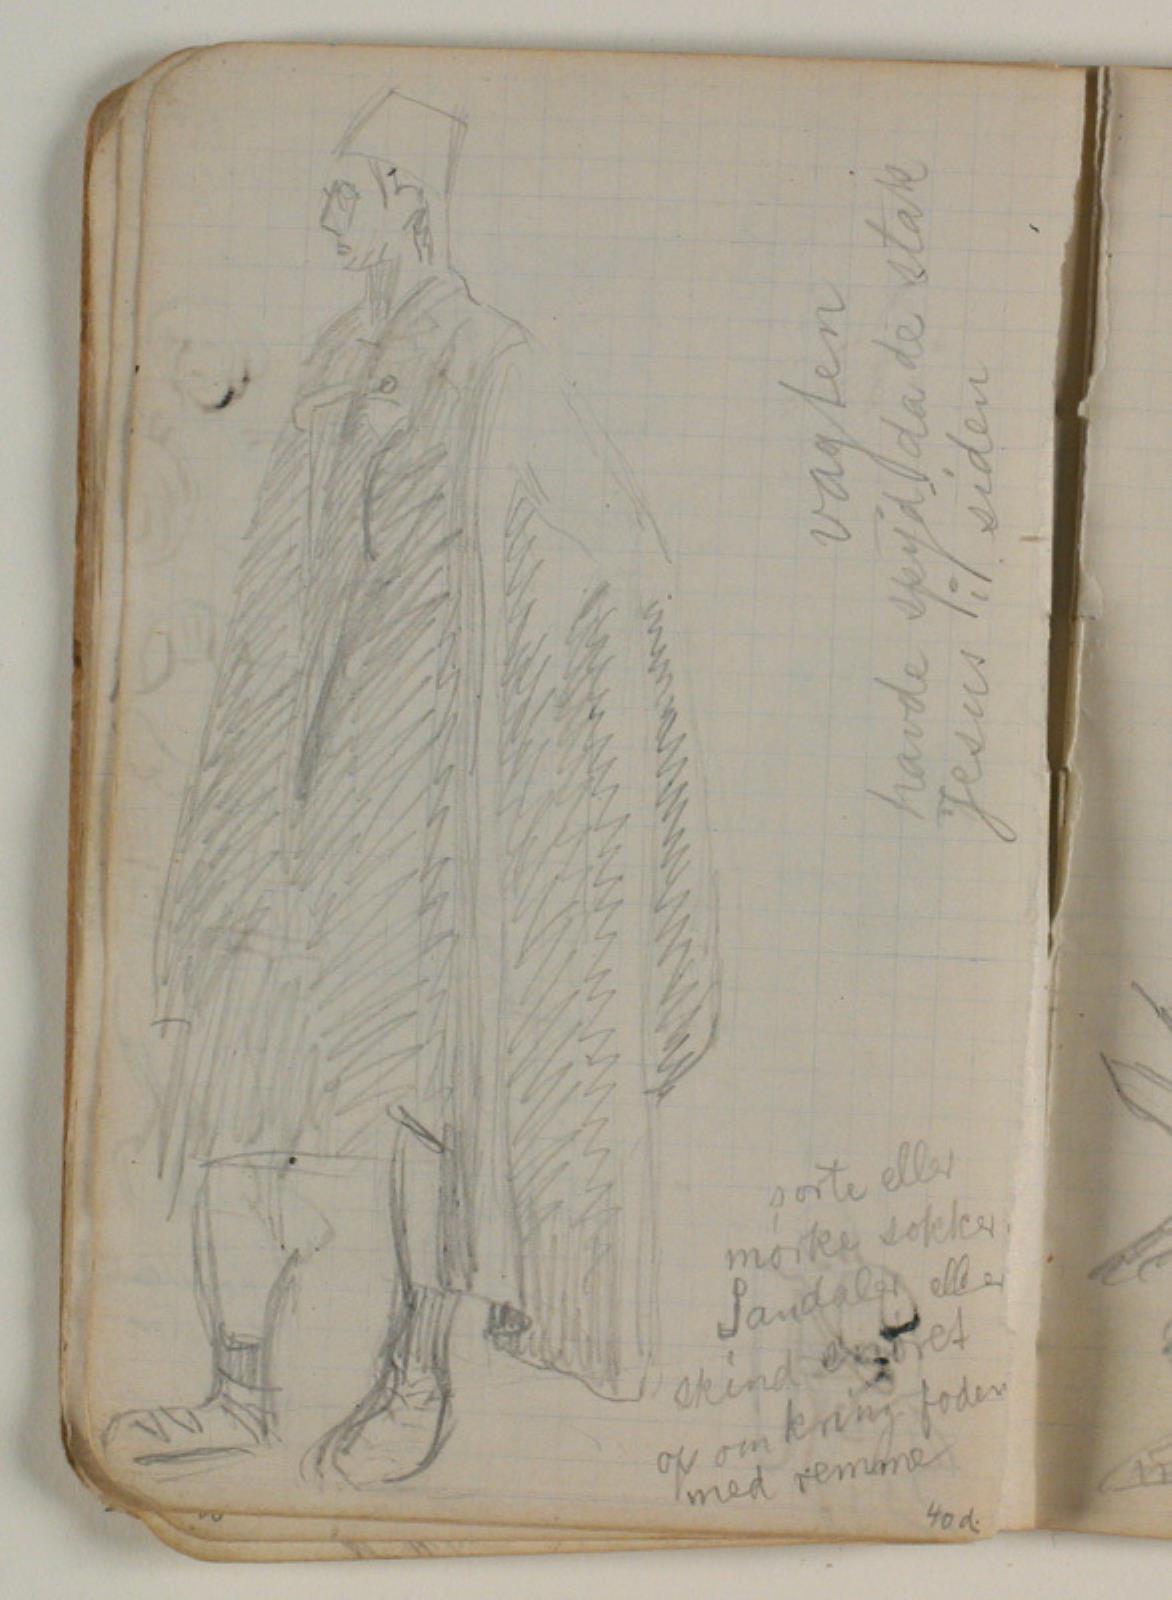 vagten
havde spyd da de stak
Jesus i siden
sorte eller
mørke sokker
Sandaler eller
skind snøret
op om kring foden
med remme
40 d.